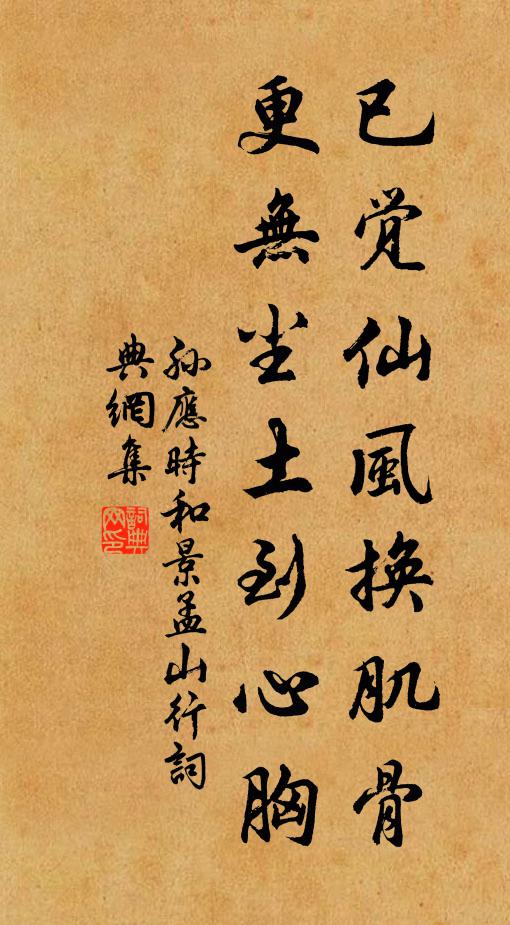 已觉仙風換肌骨
更無尘土到心胸
孫應時和景孟山行詞
典網集
詞典網印